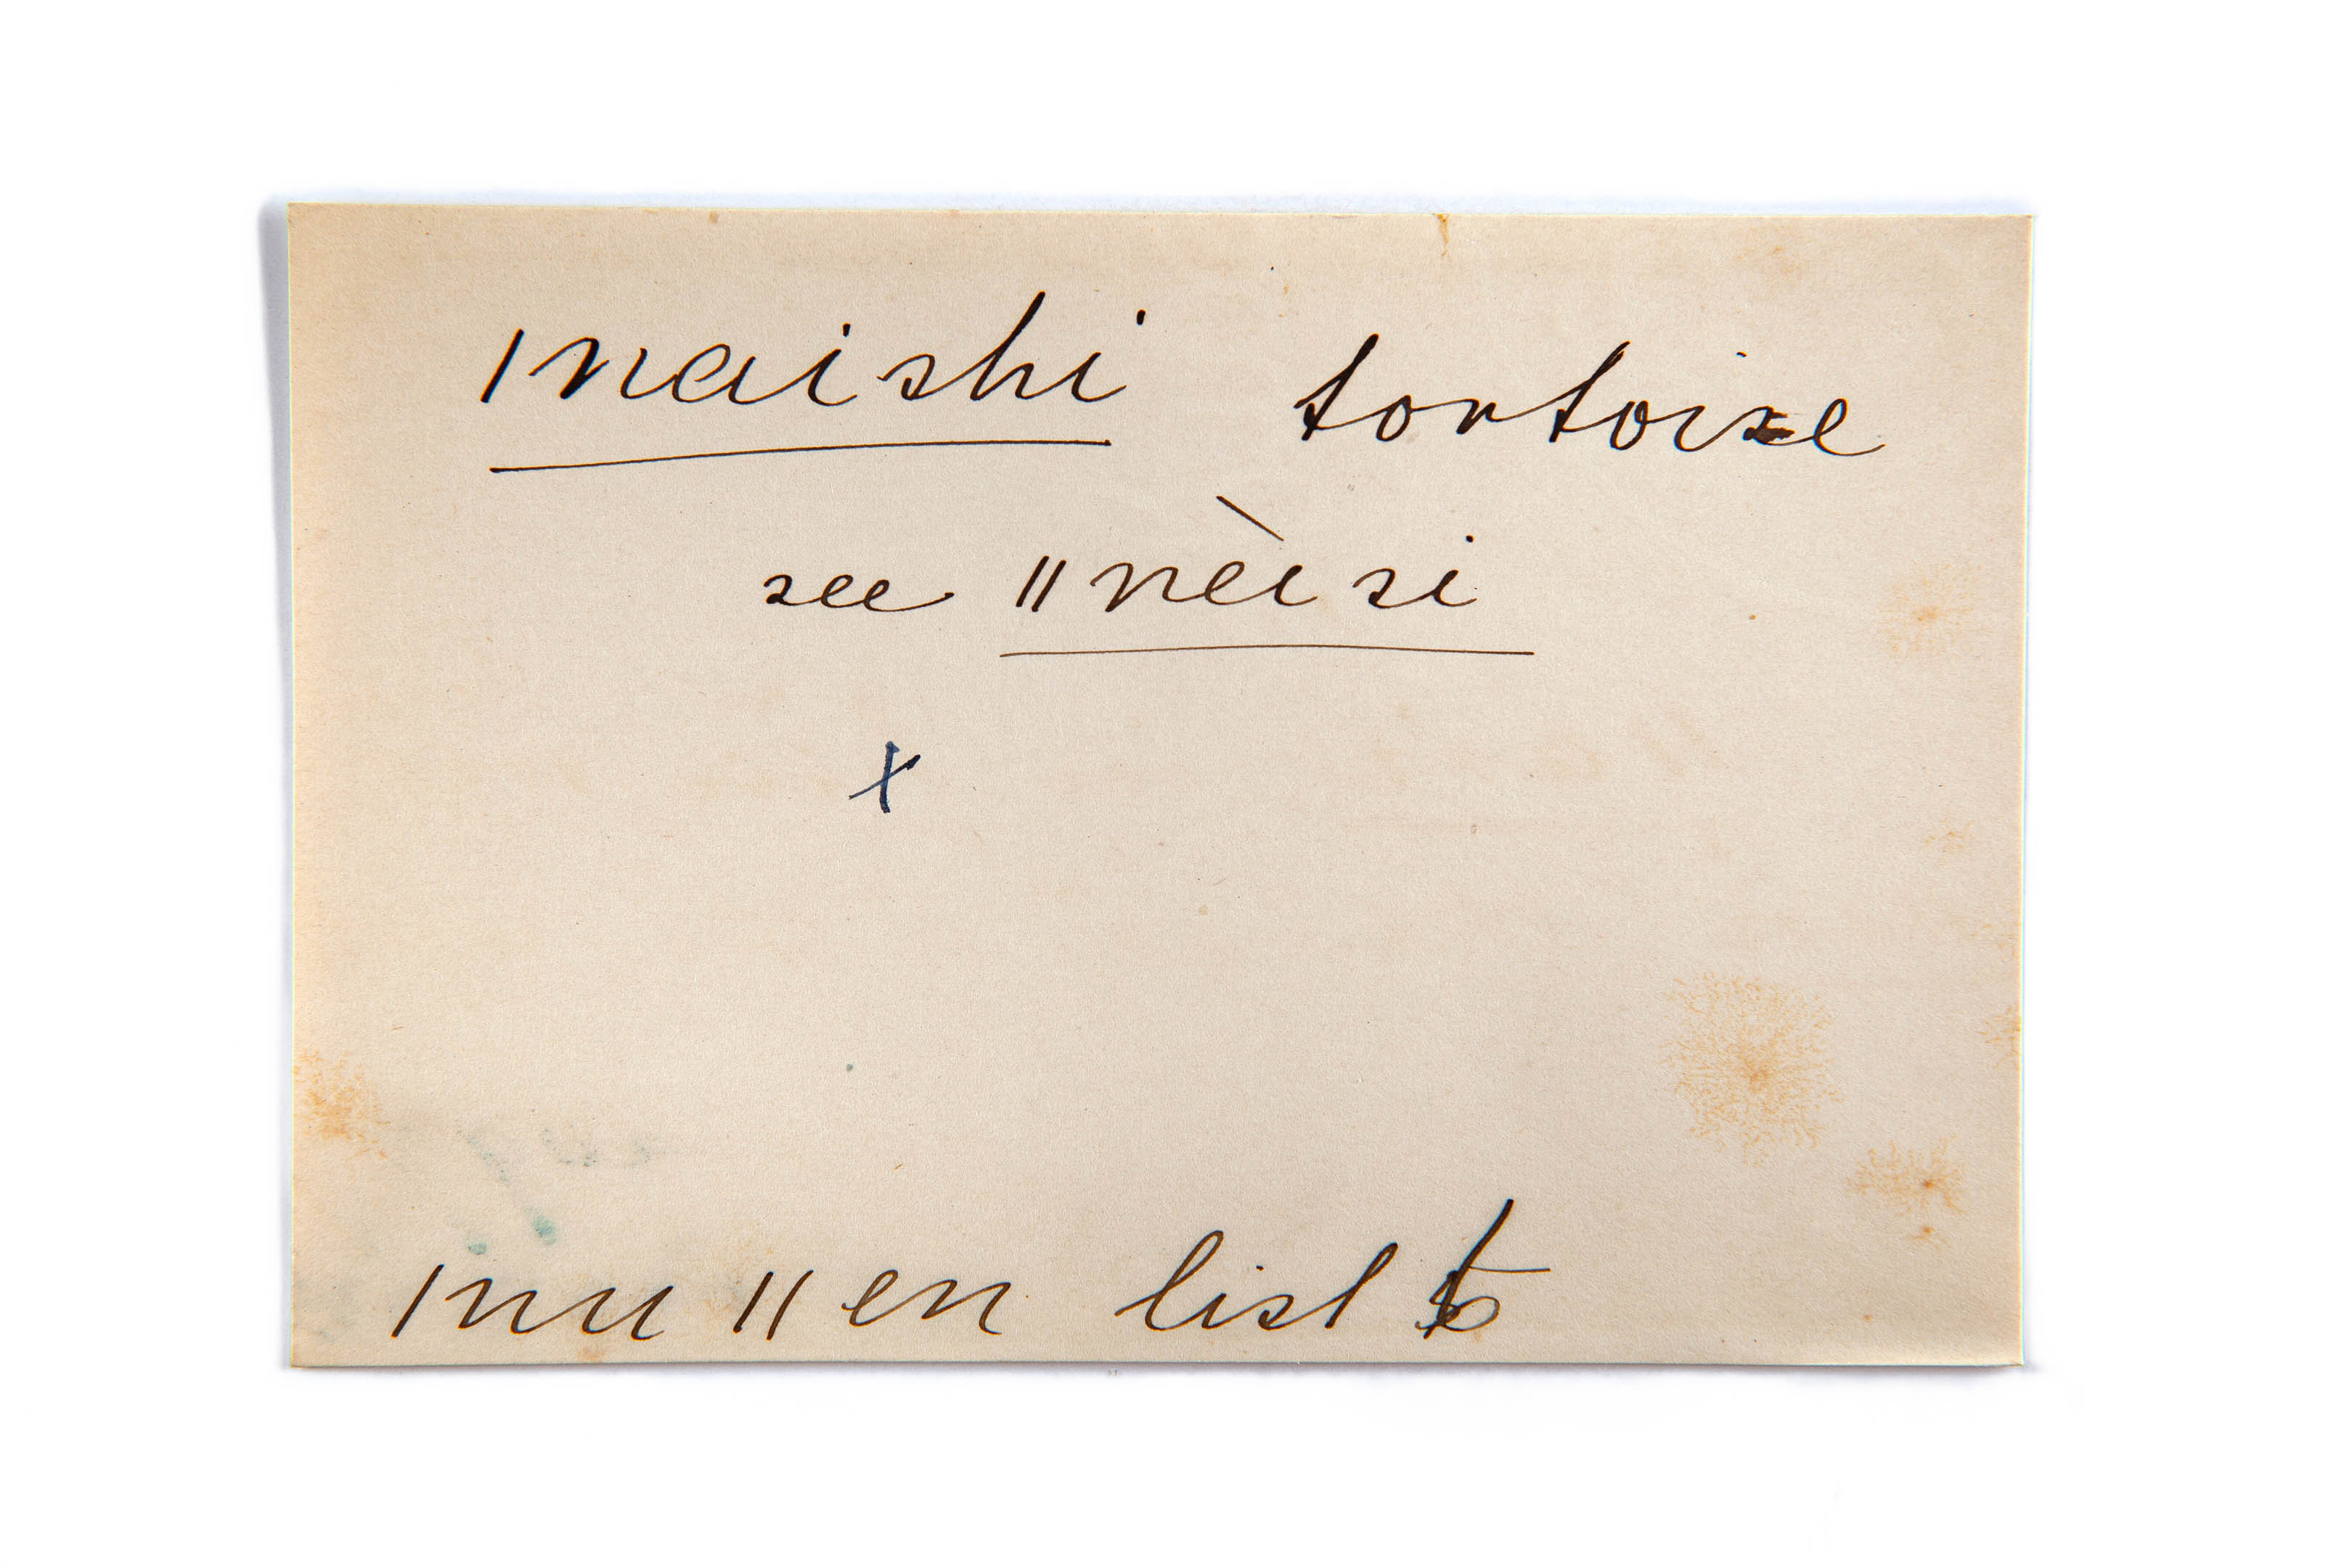 ǀnaishi tortoise
see ǁnèisi
x
ǀnu ǁen list 6